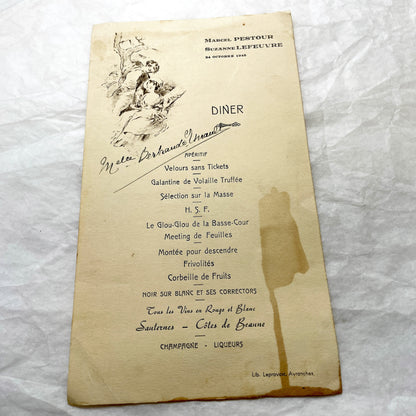 MARCEL PESTOUR
SUZANNE LEFEUVRE
24 OCTOBRE 1945
DINER
APÉRITIF
Velours sans Tickets
Galantine de Volaille Truffée
Sélection sur la Masse
H. S. F.
Le Glou-Glou de la Basse-Cour
Meeting de Feuilles
Montée pour descendre
Frivolités
Corbeille de Fruits
NOIR SUR BLANC ET SES CORRECTORS
Tous les Vins en Rouge et Blanc
Sauternes – Côtes de Beaune
CHAMPAGNE - LIQUEURS
Lib. Leprovost, Avranches.